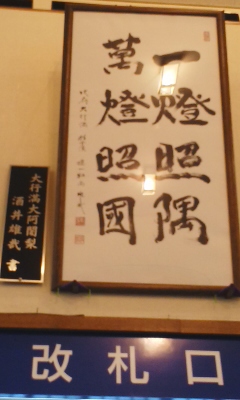 一燈照隅
萬燈照國
大行満大阿闍梨
酒井雄哉 書
改札口